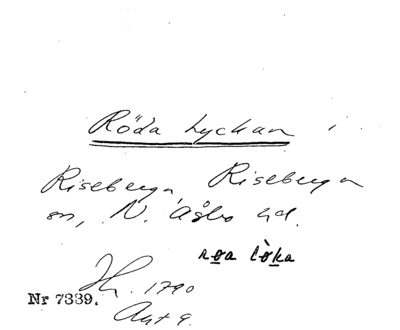 Röda Lyckan i
Riseberga, Riseberga
sn, N. Åsbo hd.
roa lòka
Jh. 1790
Nr 7339.
Akt 9.